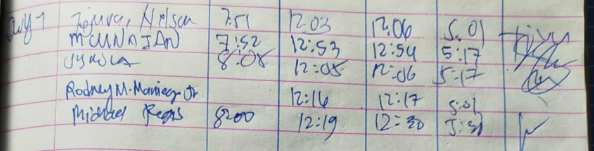 July 7 Nelson 7:51 12:03 12:06 5:01
MCUNAJAN 7:52 12:53 12:54 5:17
8:08 12:05 12:06 5:17
Rodney M. Jr 12:16 12:17 5:01
Michael 8:00 12:19 12:20